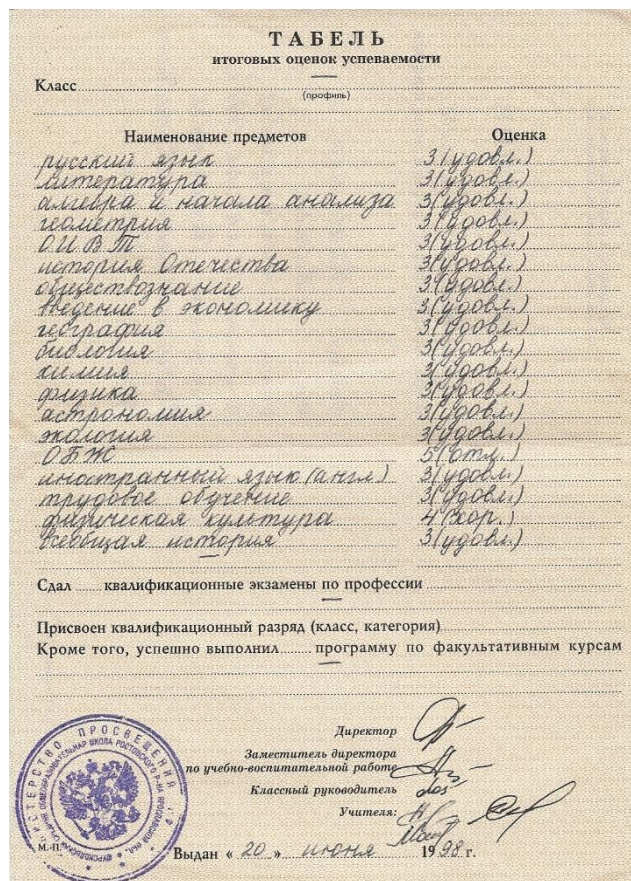 ТАБЕЛЬ
итоговых оценок успеваемости
Класс
(профиль)
Наименование предметов Оценка
русский язык 3(удовл.)
литература 3(удовл.)
алгебра и начала анализа 3(удовл.)
геометрия 3(удовл.)
ОИВТ 3(удовл.)
история Отечества 3(удовл.)
обществознание 3(удовл.)
введение в экономику 3(удовл.)
география 3(удовл.)
биология 3(удовл.)
химия 3(удовл.)
физика 3(удовл.)
астрономия 3(удовл.)
экология 3(удовл.)
ОБЖ 5(отл.)
иностранный язык (англ) 3(удовл.)
трудовое обучение 3(удовл.)
физическая культура 4(хор.)
всеобщая история 3(удовл.)
Сдал ...... квалификационные экзамены по профессии
Присвоен квалификационный разряд (класс, категория)
Кроме того, успешно выполнил ...... программу по факультативным курсам
Директор
Заместитель директора
по учебно-воспитательной работе
Классный руководитель
Учителя:
М.П.
Выдан « 20 » июня 1998 г.